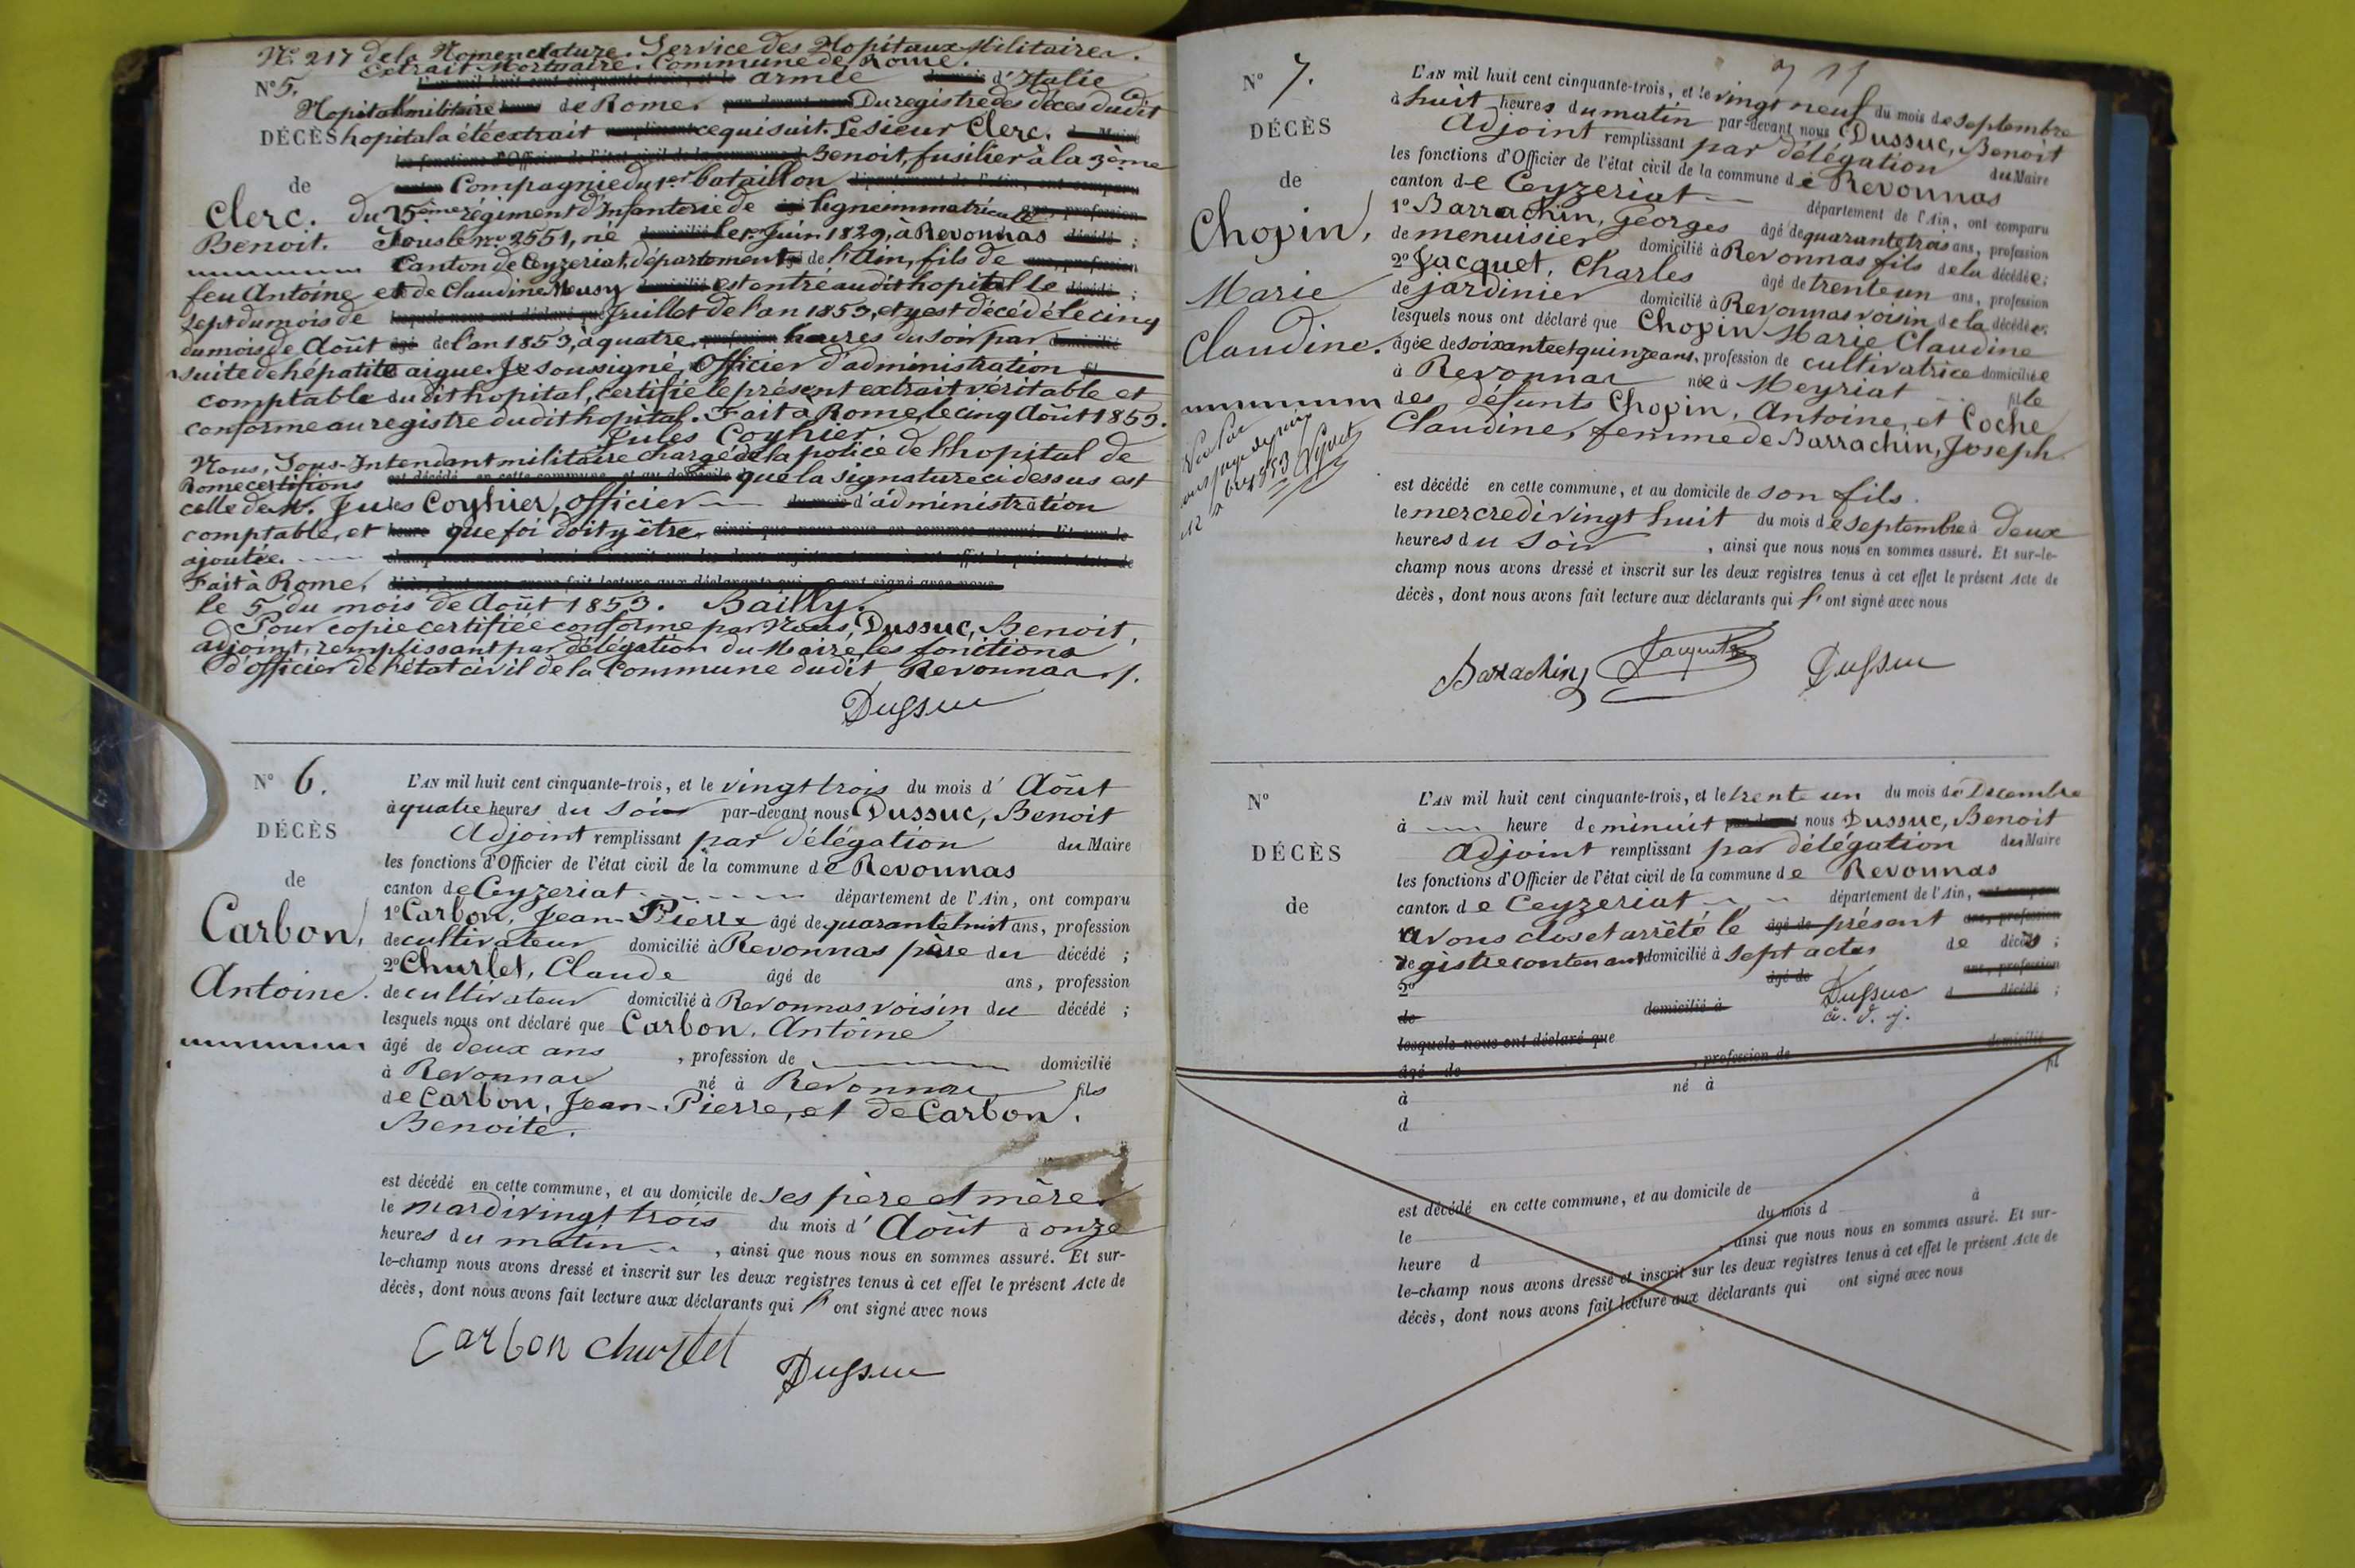 N.º 217 de la Nomenclature. Service des Hopitaux Militaires.
Extrait Mortuaire. Commune de Rome.
N.º 5. L'an mil huit cent cinquante-trois, et le armée du mois d'Italie
Hopital militaire heures de Rome. par-devant nous Du registre des décès dudit
DÉCÈS hopital a été extrait remplissant ce qui suit. Le sieur Clerc. d Maire
les fonctions d'Officier de l'état civil de la commune d Benoit, fusilier à la 3ème
de
canton Compagnie du 1er bataillon département de l'Ain, ont comparu
Clerc. du 25ème régiment d'Infanterie de âgé ligne immatriculé ans, profession
Benoit. Sous le n.º 2551, né domicilié le 1er Juin 1829, à Revonnas décédé ;
Canton de Ceyzeriat, département âgé de l'Ain, fils de ans, profession
feu Antoine et de Claudine Musy domicilié est entré audit hopital le décédé ;
sept du mois de lesquels nous ont déclaré que Juillet de l'an 1853, et y est décédé le cinq
du mois de Août âgé de l'an 1853, à quatre profession heures du soir par domicilié
suite de hépatite aigue. Je soussigné, Officier d'administration
comptable du dit hopital, certifie le présent extrait véritable et
conforme au registre dudit hopital. Fait à Rome, le cinq Août 1853.
Jules Coyhier.
Nous, Sous-Intendant militaire chargé de la police de l'hopital de
Rome certifions est décédé en cette commune, et au domicile d que la signature ci dessus est
celle de M. Jules Coyhier, officier du mois d'administration
comptable, et heure que foi doit y être ainsi que nous nous en sommes assuré. Et sur-le
ajoutée. champ nous avons dressé et inscrit sur les deux registres tenus à cet effet le présent Acte de
Fait à Rome, décès, dont nous avons fait lecture aux déclarants qui ont signé avec nous
le 5 du mois de Août 1853. Bailly.
Pour copie certifiée conforme par Nous, Dussuc, Benoit,
adjoint, remplissant par délégation du Maire, les fonctions
d'officier de l'état civil de la Commune dudit Revonnas.
Dussuc
N° 6.
DÉCÈS
de
Carbon,
Antoine.
L'AN mil huit cent cinquante-trois, et le vingt trois du mois d'Août
à quatre heures du soir par-devant nous Dussuc, Benoit
Adjoint remplissant par délégation du Maire
les fonctions d'Officier de l'état civil de la commune de Revonnas
canton de Ceyzeriat département de l'Ain, ont comparu
1° Carbon, Jean-Pierre âgé de quarante huit ans, profession
de cultivateur domicilié à Revonnas père du décédé ;
2° Churlet, Claude âgé de ans, profession
de cultivateur domicilié à Revonnas voisin du décédé ;
lesquels nous ont déclaré que Carbon, Antoine
âgé de deux ans , profession de domicilié
à Revonnas né à Revonnas fils
de Carbon, Jean-Pierre, et de Carbon,
Benoite.
est décédé en cette commune, et au domicile de ses père et mère
le mardi vingt trois du mois d'Août à onze
heures du matin , ainsi que nous nous en sommes assuré. Et sur-
le-champ nous avons dressé et inscrit sur les deux registres tenus à cet effet le présent Acte de
décès, dont nous avons fait lecture aux déclarants qui l'ont signé avec nous
Carbon Churlet Dussuc
N° 7.
DÉCÈS
de
Chopin,
Marie
Claudine.
L'AN mil huit cent cinquante-trois, et le vingt neuf du mois de septembre
à huit heures du matin par-devant nous Dussuc, Benoit
Adjoint remplissant par délégation du Maire
les fonctions d'Officier de l'état civil de la commune de Revonnas
canton de Ceyzeriat département de l'Ain, ont comparu
1° Barrachin, Georges âgé de quarante trois ans, profession
de menuisier domicilié à Revonnas fils de la décédée ;
2° Jacquet, Charles âgé de trente un ans, profession
de jardinier domicilié à Revonnas voisin de la décédée ;
lesquels nous ont déclaré que Chopin Marie Claudine
âgée de soixante et quinze ans, profession de cultivatrice domiciliée
à Revonnas née à Meyriat fille
des défunts Chopin, Antoine, et Coche
Claudine, femme de Barrachin, Joseph.
est décédé en cette commune, et au domicile de son fils.
le mercredi vingt huit du mois de septembre à deux
heures du soir , ainsi que nous nous en sommes assuré. Et sur-le-
champ nous avons dressé et inscrit sur les deux registres tenus à cet effet le présent Acte de
décès, dont nous avons fait lecture aux déclarants qui l'ont signé avec nous
Barrachin Jacquet Dussuc
N°
DÉCÈS
de
L'AN mil huit cent cinquante-trois, et le trente un du mois de Décembre
à heure de minuit par-devant nous Dussuc, Benoit
Adjoint remplissant par délégation du Maire
les fonctions d'Officier de l'état civil de la commune de Revonnas
canton de Ceyzeriat département de l'Ain, ont comparu
avons clos et arrêté le âgé de présent ans, profession
registre contenant domicilié à sept actes de décès ;
2° âgé de ans, profession
de domicilié à Dussuc d décédé ;
lesquels nous ont déclaré que
âgé de , profession de domicilié
à né à fil
d
est décédé en cette commune, et au domicile de
le du mois d à
heure d , ainsi que nous nous en sommes assuré. Et sur-
le-champ nous avons dressé et inscrit sur les deux registres tenus à cet effet le présent Acte de
décès, dont nous avons fait lecture aux déclarants qui ont signé avec nous